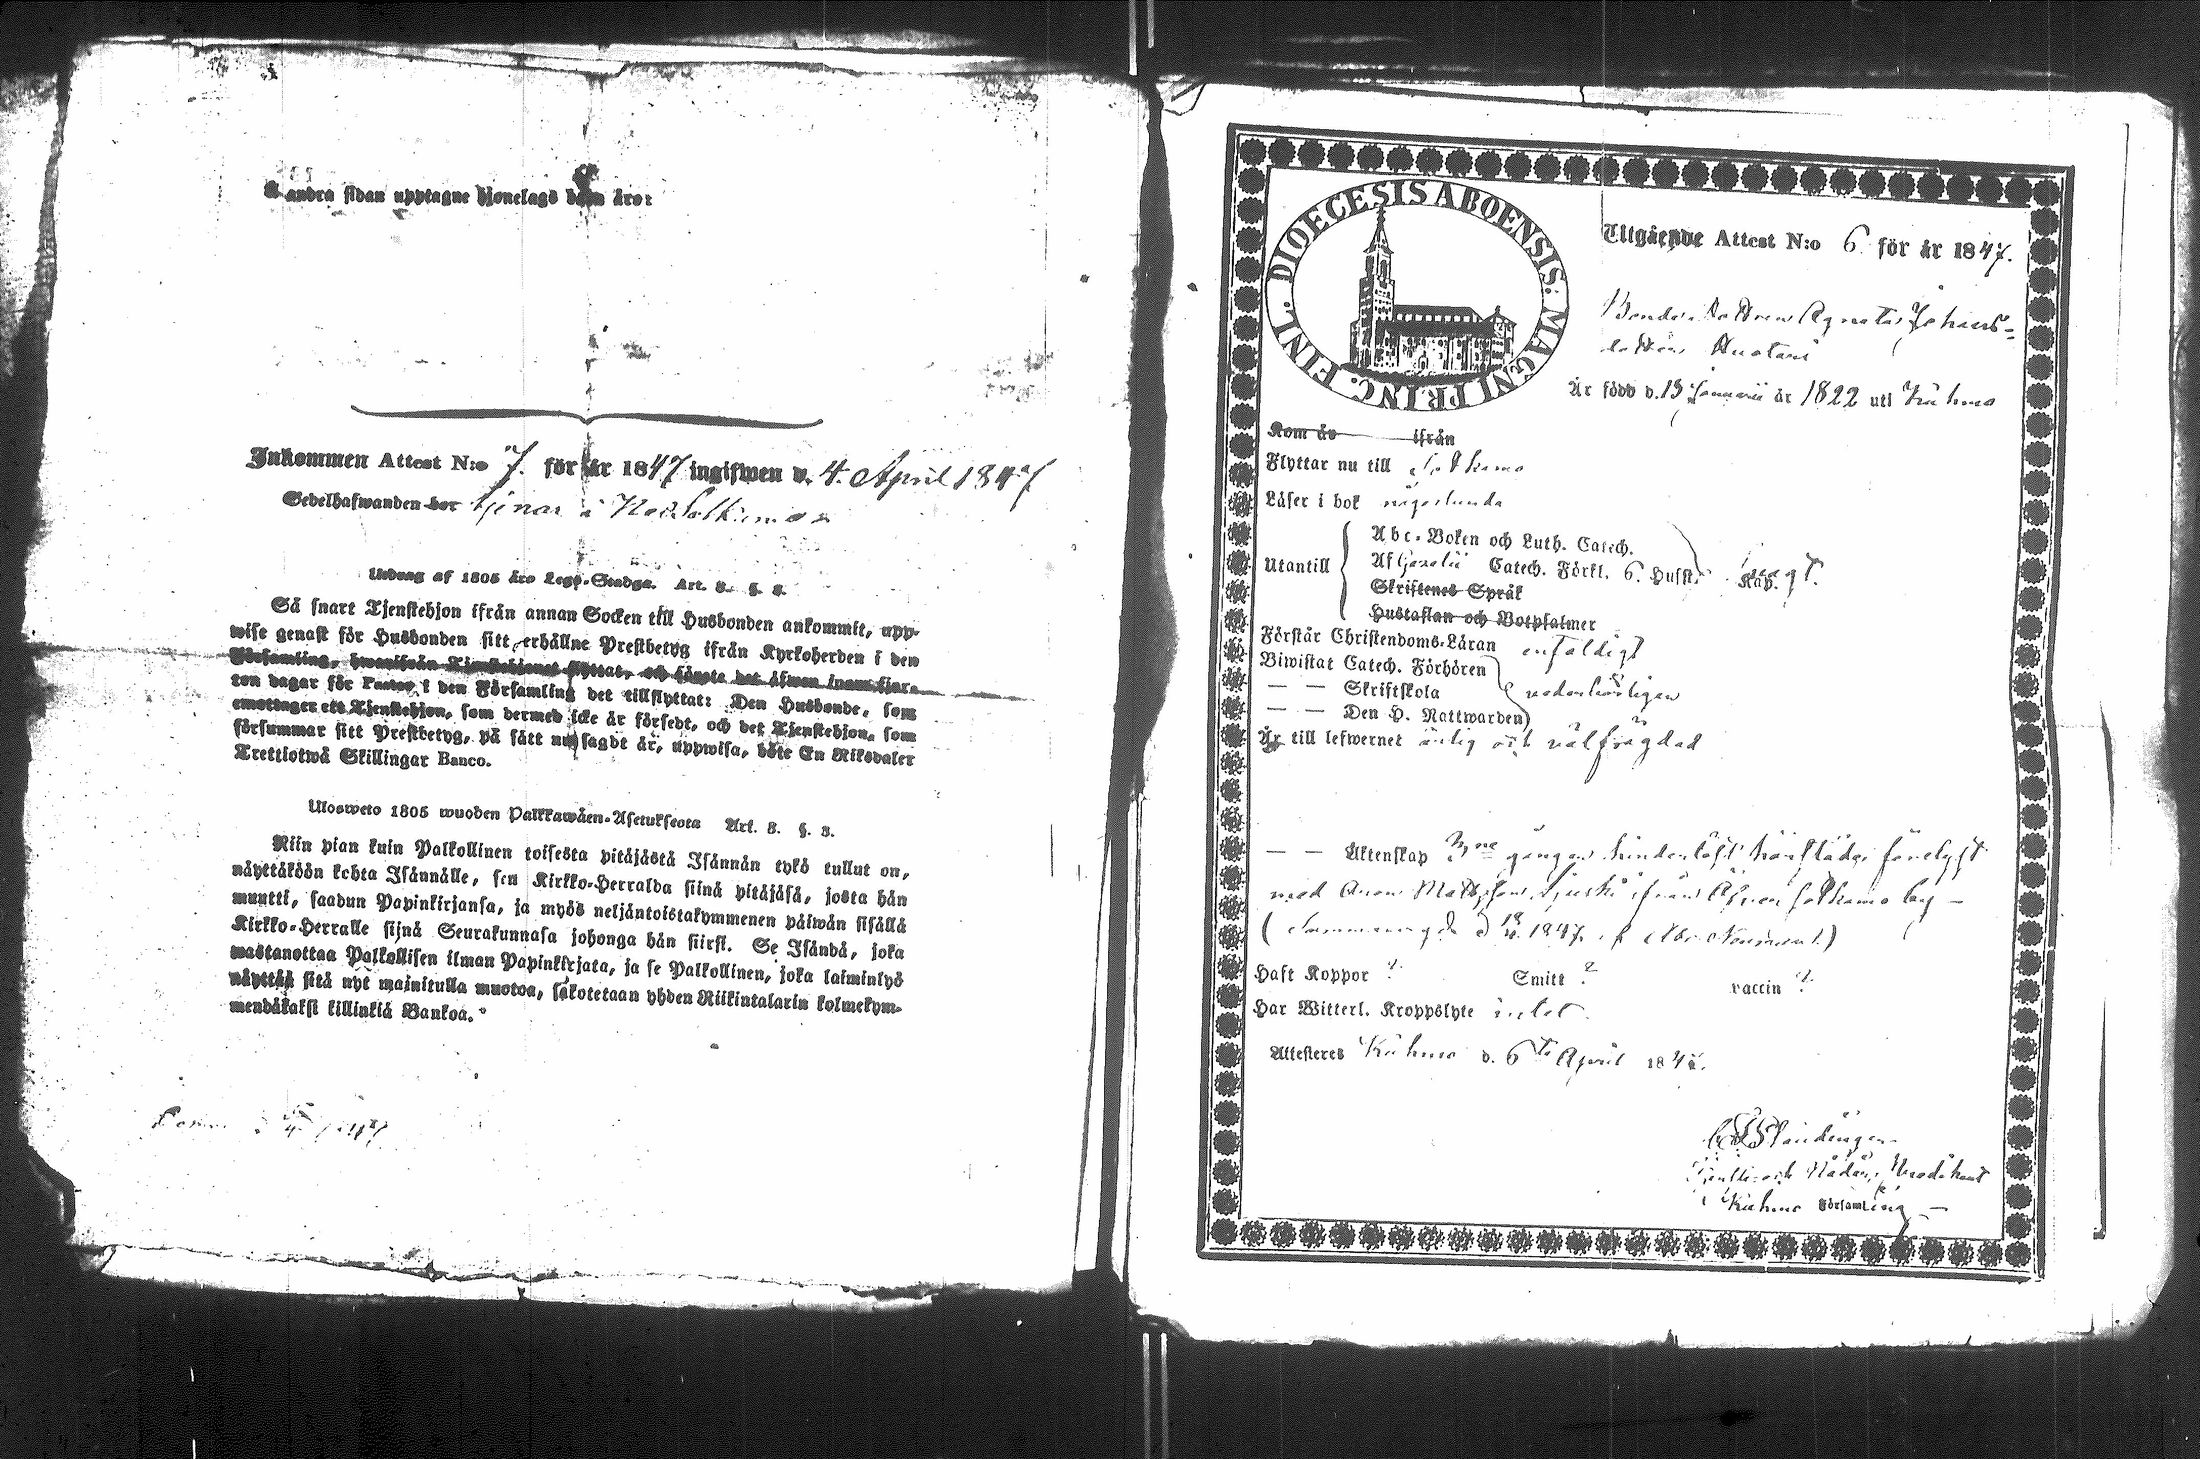 å andra sidan upptagne hjonelags barn äro:
Inkommen Attest N:o 7. för år 1847 ingifwen d. 4. April 1847
Sedelhafwanden bor tjenar i
Utdrag af 1805 års Lego-Stadga. Art. 3. §. 3.
Så snart Tjenstehjon ifrån annan Socken till Husbonden ankommit, upp-
wise genast för Husbonden sitt erhållne Prestbetyg ifrån Kyrkoherden i den
Församling, hwarifrån Tjenstehjonet flyttat, och sänge det äfwen inom fjor-
ton dagar för Pastor i den Församling det tillflyttat: Den Husbonde, som
emottager ett Tjenstehjon, som dermed icke är försedt, och det Tjenstehjon, som
försummar sitt Prestbetyg, på sätt nu sagdt är, uppwisa, böte En Riksdaler
Trettiotwå Skillingar Banco.
Ulosweto 1805 wuoden Palkkawäen-Asetuksesta Art. 3. §. 3.
Niin pian kuin Palkollinen toisesta pitäjästä Isännän tykö tullut on,
näyttäköön kohta Isännälle, sen Kirkko-Herralda siinä pitäjäsä, josta hän
muutti, saadun Papinkirjansa, ja myös neljäntoistakymmenen päiwän sisällä
Kirkko-Herralle siinä Seurakunnasa johonga hän siirsi. Se Isändä, joka
wastanottaa Palkollisen ilman Papinkirjata, ja se Palkollinen, joka laiminlyö
näyttää sitä nyt mainitulla muotoa, sakotetaan yhden Riikintalarin kolmekym-
mendäkaksi killinkiä Bankoa.
DIOECESIS ABOENSIS. MAGNI PRINC. FINL.
Utgående Attest N:o 6 för år 1847.
Bondedottren Agneta Johans-
dotter
Är född d. 19 Januarii år 1822 uti Kuhmo
Kom år ifrån
Flyttar nu till Sotkamo
Läser i bok någorlunda
Utantill
Abc-Boken och Luth. Catech.
Af Gezelii Catech. Förkl. 6. Hufst. Kap.
Skriftenes Språk
Hustaflan och Botpsalmer
Förstår Christendoms-Läran enfaldigt
Biwistat Catech. Förhören
— — Skriftskola vederbörligen
— — Den H. Nattwarden
Är till lefwernet ärlig och välfrägdad
— — Äktenskap 3ne gånger hinderlöst härstädes förelyst
med ifrån Sotkamo by —
( 1847. )
Haft Koppor ? Smitt ? vaccin ?
Har Witterl. Kroppslyte intet.
Attesteras Kuhmo d. 6te April 1847.
Kuhmo Församling —